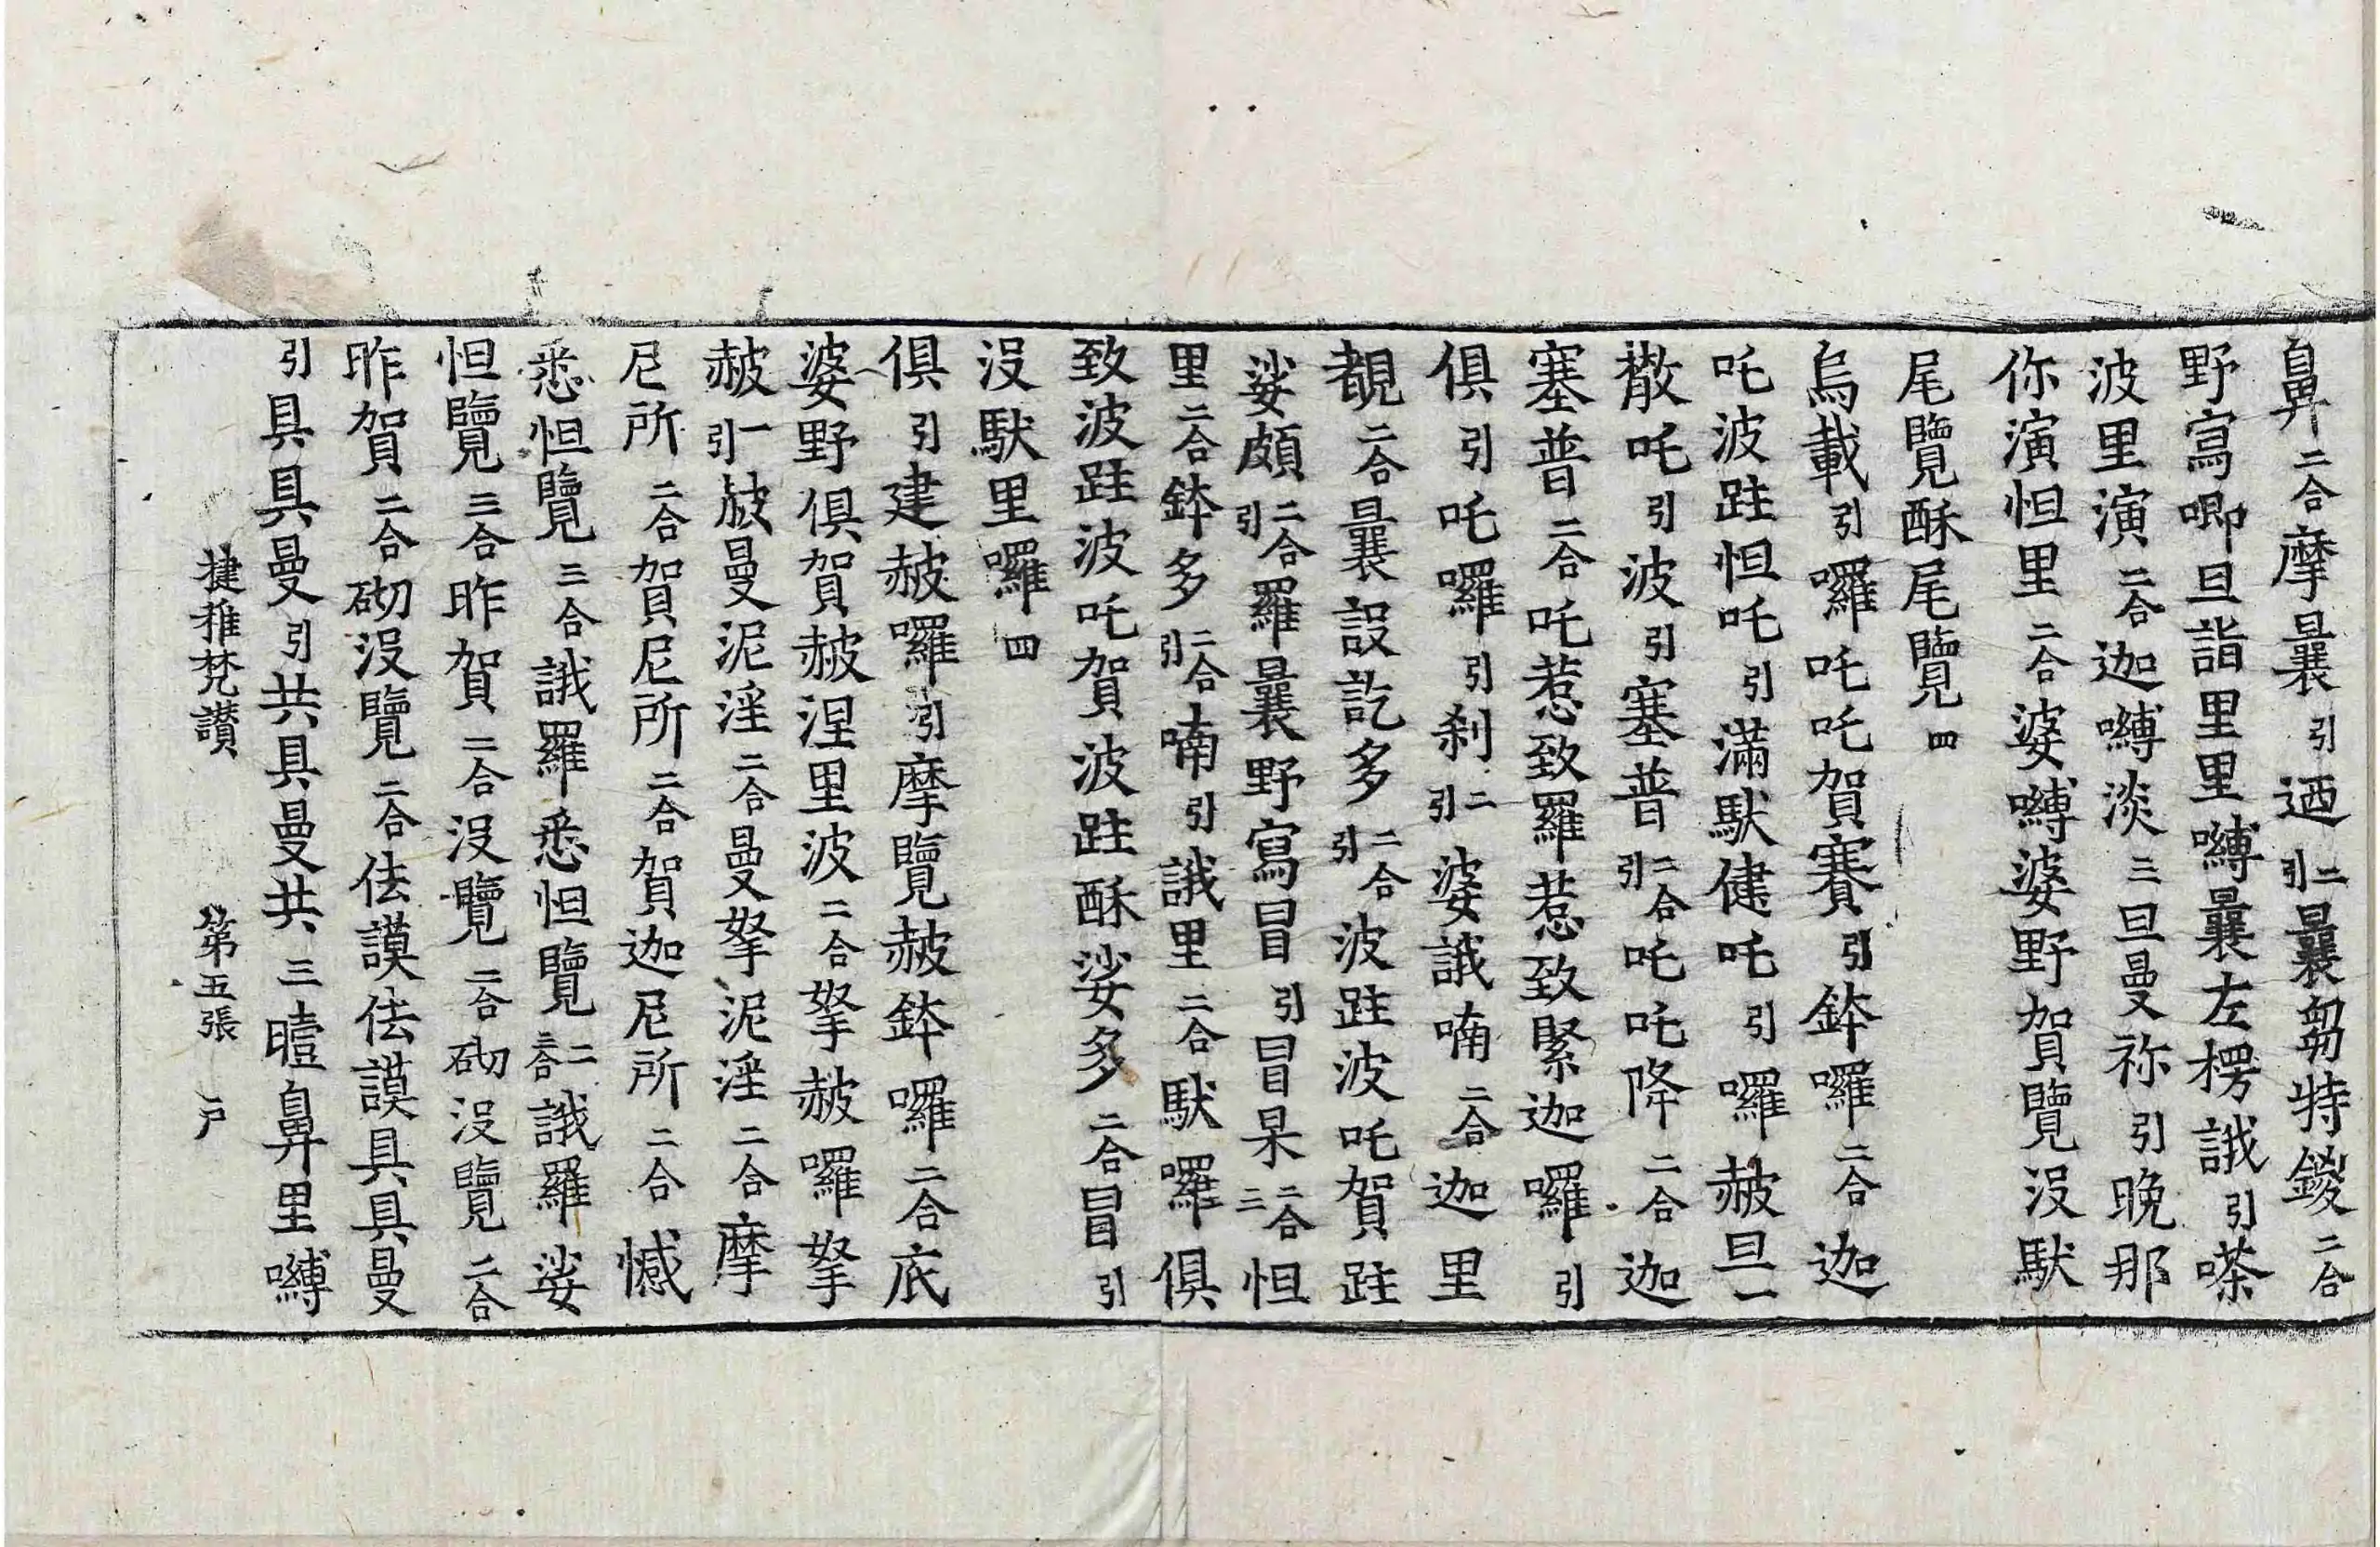 鼻二合摩曩引迺二引曩芻特鑁二合
野寫唧旦詣里里嚩曩左楞誐引嗏
波里演二合迦嚩淡三旦曼祢引晚那
你演怛里二合婆嚩婆野賀覽沒馱
尾覽酥尾覽四
烏載引囉吒吒賀賽引鉢囉二合迦
吒波跓怛吒引滿馱健吒引囉赧旦一
撒吒引波引塞普二合引吒吒降二合迦
塞普二合吒惹致羅惹致緊迦囉引
俱引吒囉引刹二引婆誐喃二合迦里
覩二合曩設訖多二合引波跓波吒賀跓
娑頗二合引羅曩野寫冒引冒杲二合三怛
里二合鉢多二合引喃引誐里二合馱囉俱
致波跓波吒賀波跓酥娑多二合冒引
沒馱里囉四
俱引建赧囉引摩覽赧鉢囉二合底
婆野俱賀赧涅里波二合拏赧囉拏
赧一引赧曼泥淫二合曼拏泥淫二合摩
尼所二合賀尼所二合賀迦尼所二合憾
悉怛覽三合誐羅悉怛覽三合二誐羅娑
怛覽三合昨賀二合沒覽二合砌沒覽二合
昨賀二合砌沒覽二合佉謨佉謨具具曼
引具具曼引共具曼共三曀鼻里嚩
揵稚梵讃　第五張　戸